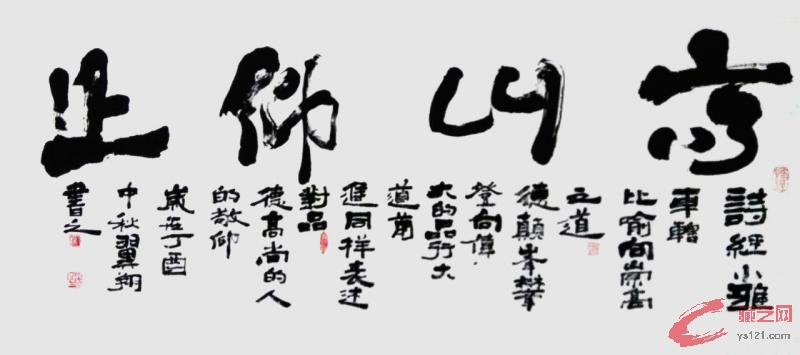 高山仰止
詩經小雅
車轄
比喻向崇高
之道
德顛峯攀
登向偉
大的品行大
道前
進同樣表述
對品
德高尚的人
的敬仰
歲在丁酉
中秋翼翔
書之
藏艺网
ys121.com